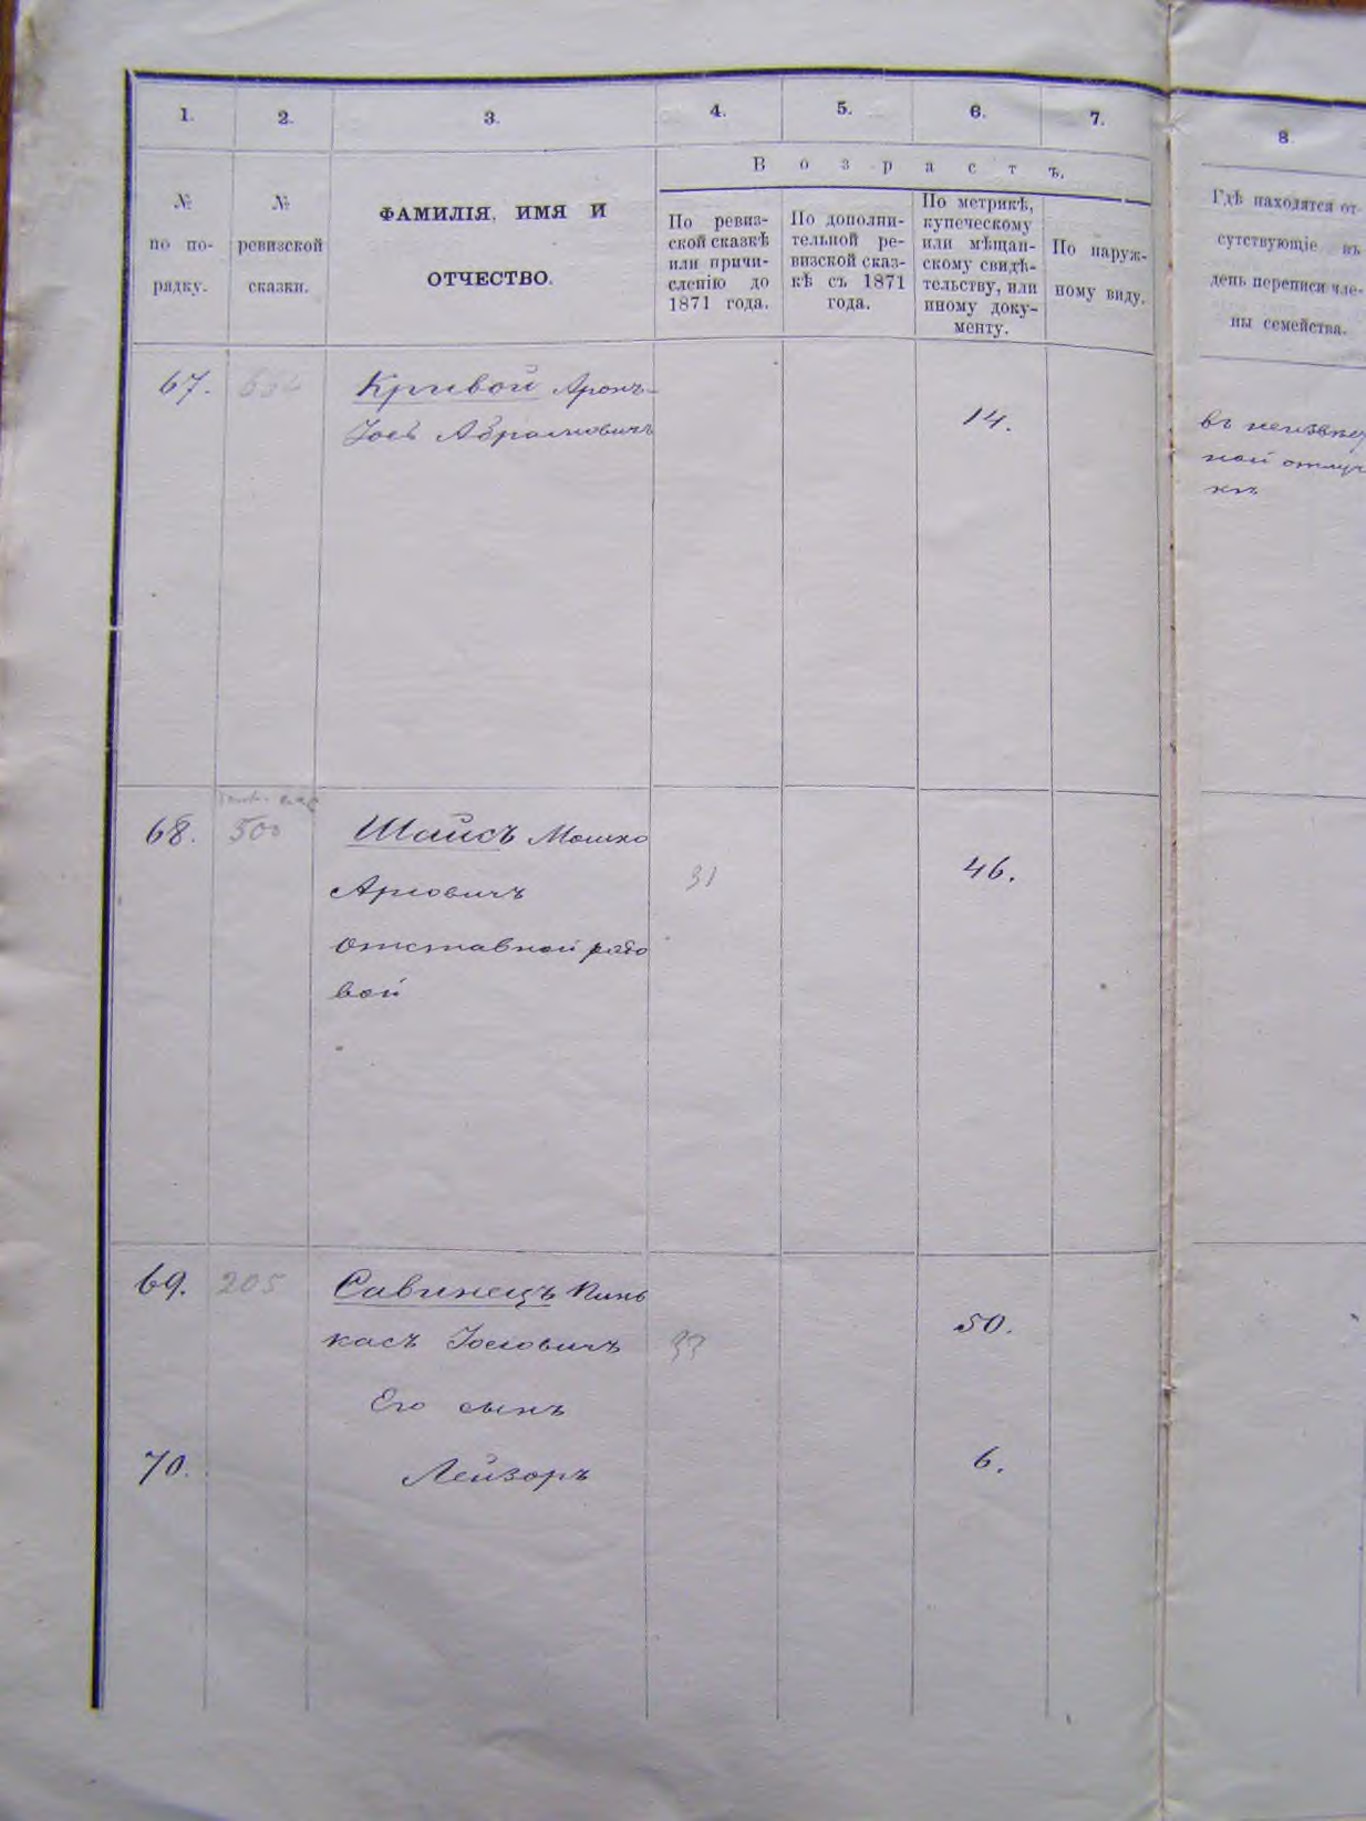 1. 2. 3. 4. 5. 6. 7. 8.
Возрастъ.
№
по по-
рядку.
№
ревизской
сказки.
ФАМИЛІЯ, ИМЯ И
ОТЧЕСТВО.
По ревиз-
ской сказкѣ
или причи-
сленію до
1871 года.
По дополни-
тельной ре-
визской сказ-
кѣ съ 1871
года.
По метрикѣ,
купеческому
или мѣщан-
скому свидѣ-
тельству, или
иному доку-
менту.
По наруж-
ному виду.
Гдѣ находятся от-
сутствующіе въ
день переписи чле-
ны семейства.
67. Кривой Аронъ-
Іось Абрамовичъ
14.
въ неизвѣст
ной отлуч
кѣ
68. 500 Шайсъ Мошко
Ариовичъ
31 46.
отставной рядо
вой
69. 205 Савинецъ Пинь
касъ Іосиовичъ
33 50.
Его сынъ
70. Лейзоръ 6.